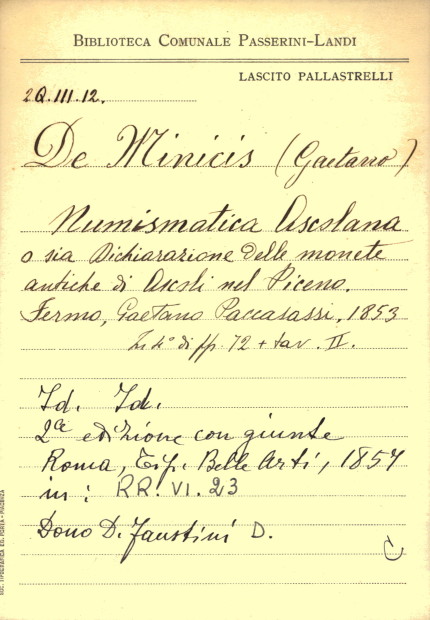 BIBLIOTECA COMUNALE PASSERINI-LANDI
LASCITO PALLASTRELLI
2Q.III.12.
De Minicis (Gaetano)
Numismatica Ascolana
o sia Dichiarazione delle monete
antiche di Ascoli nel Piceno.
Fermo, Gaetano Paccasassi, 1853
In 4° di pp. 72 + tav. II.
Id. Id.
2ª edizione con giunte
Roma, Tip. Belle Arti, 1857
in: RR. VI. 23
Dono D. Faustini D.
C
SOC. TIPOGRAFICA ED. PORTA - PIACENZA